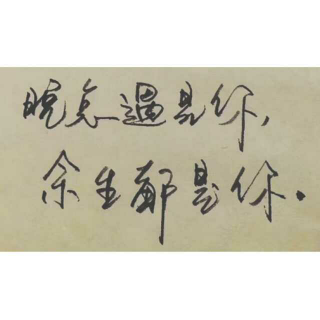 晚点遇見你,
余生都是你。